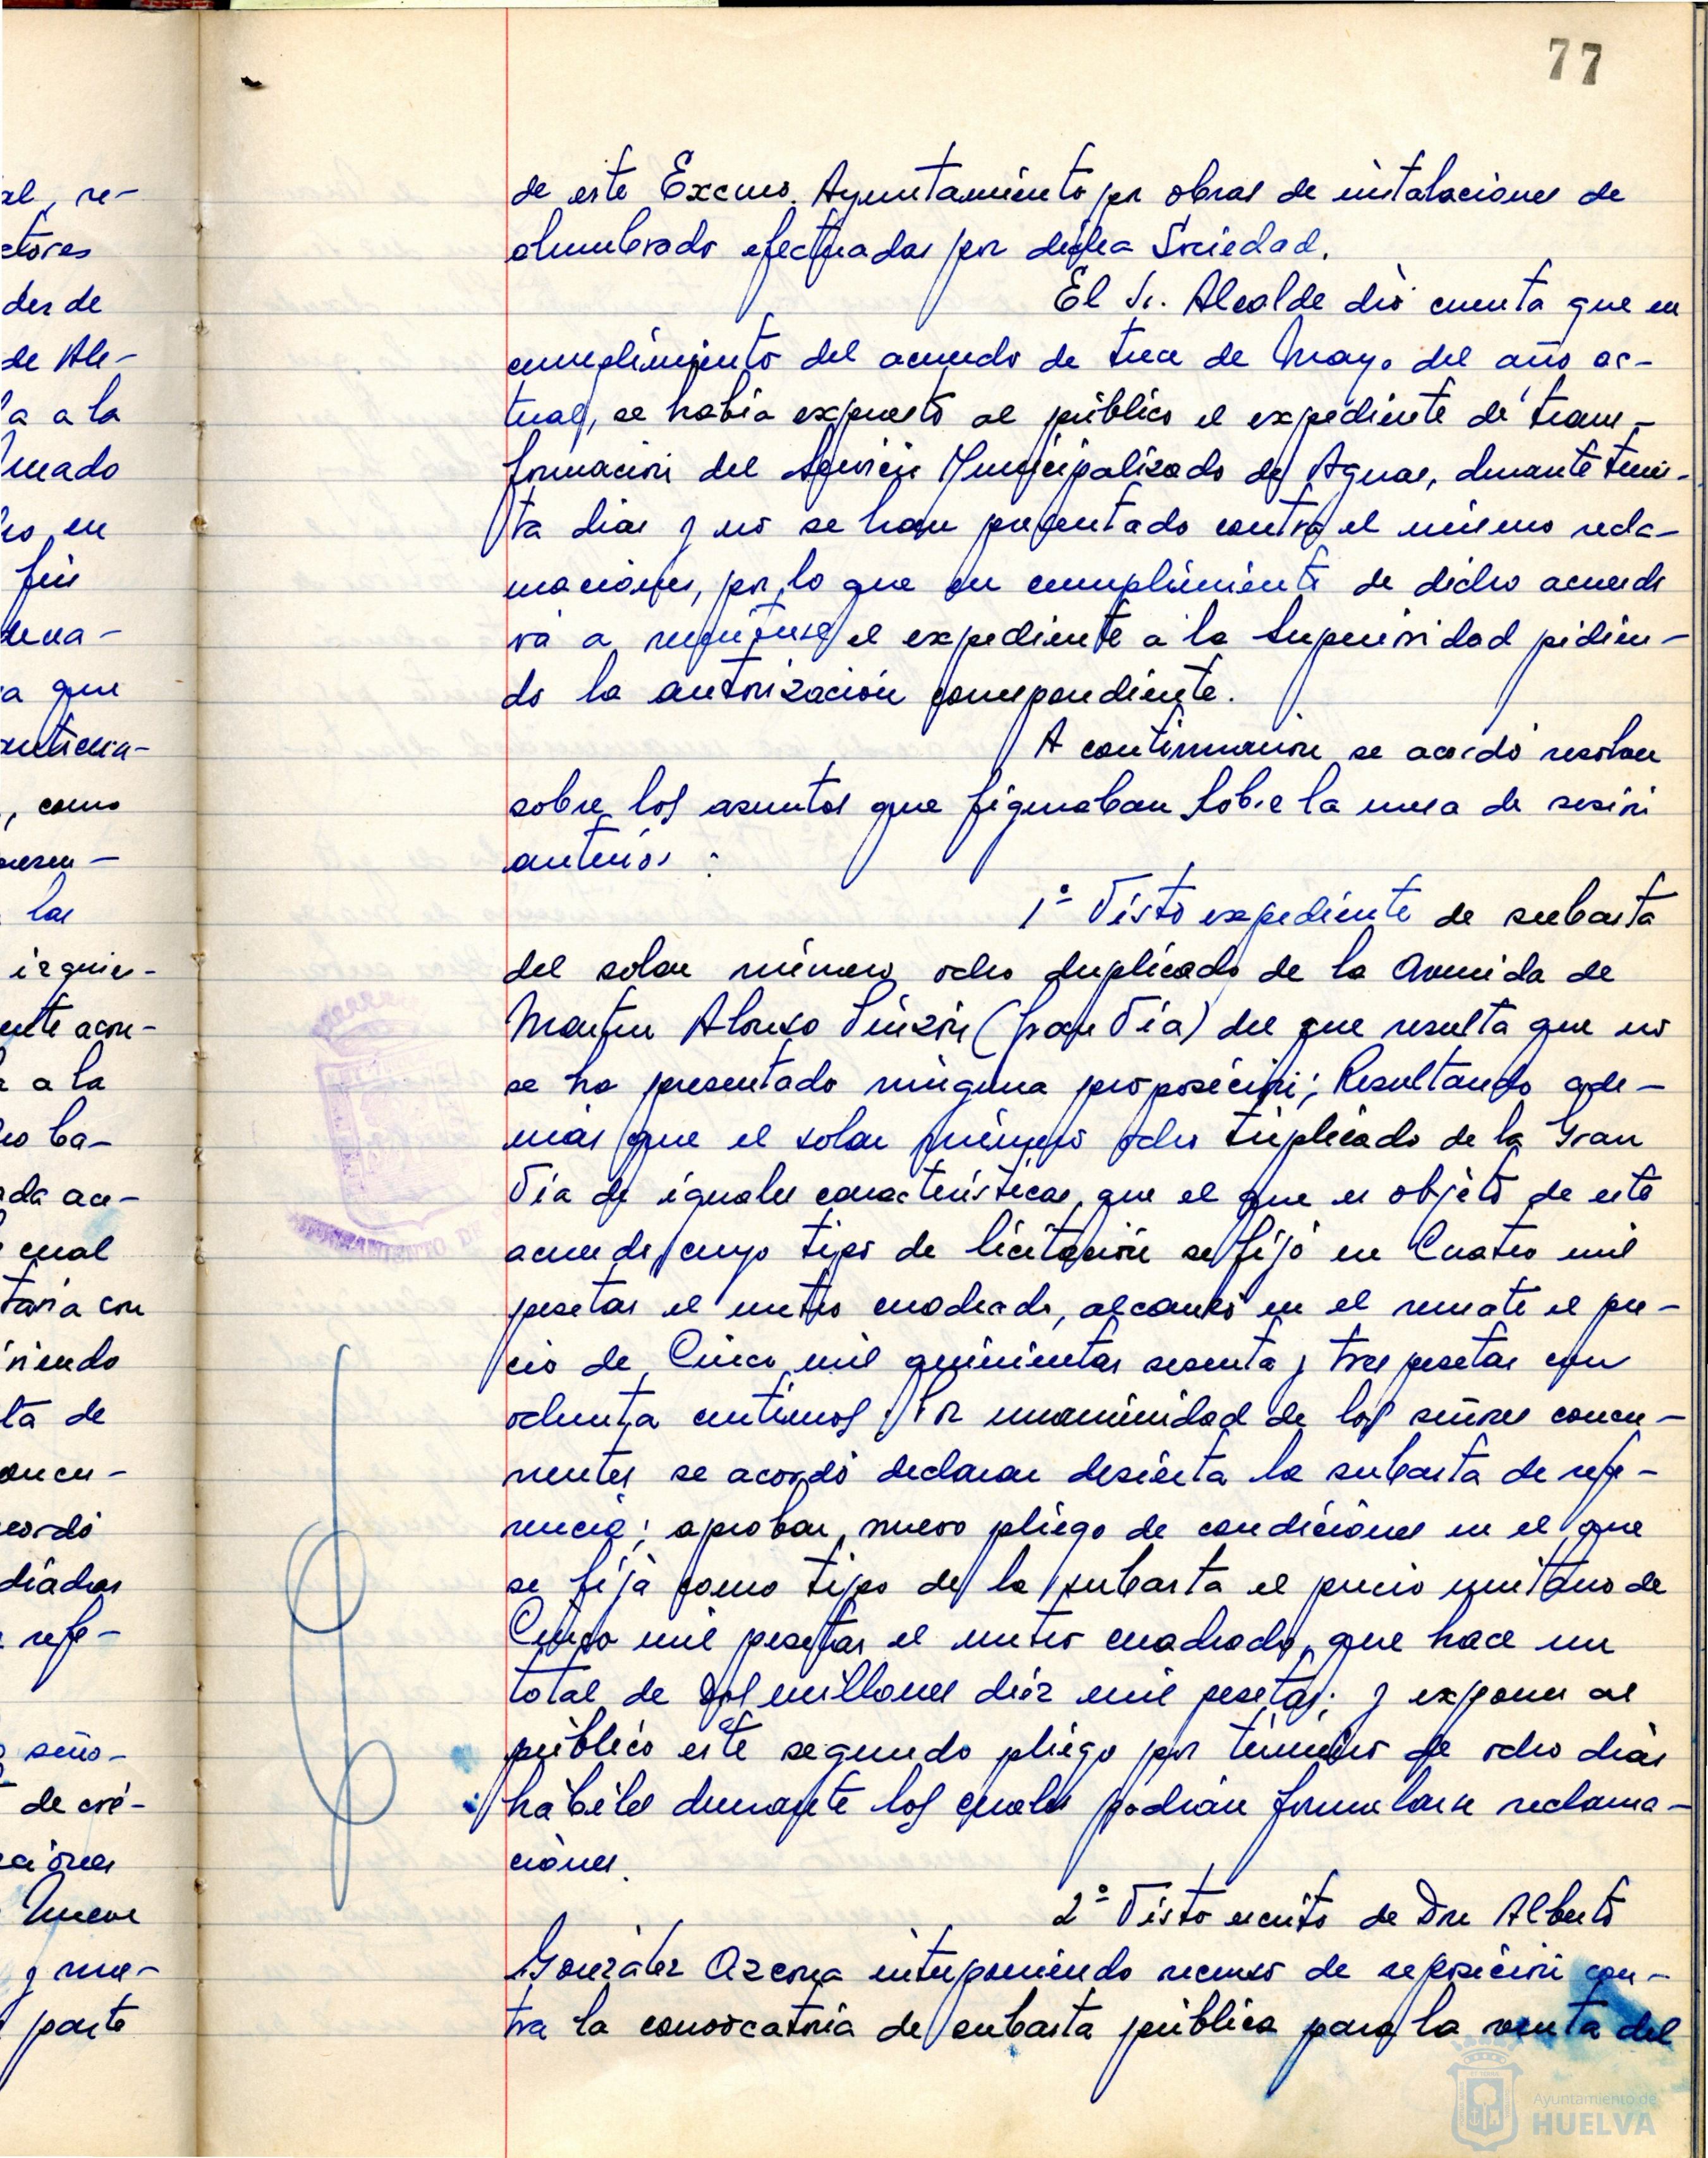 77
de este Excmo. Ayuntamiento por obras de instalaciones de
alumbrado efectuadas por dicha Sociedad.
El Sr. Alcalde dió cuenta que en
cumplimiento del acuerdo de trece de Mayo del año ac-
tual, se había expuesto al público el expediente de trans-
formación del Servicio Municipalizado de Aguas, durante trein-
ta dias y no se han presentado contra el mismo recla-
maciones, por lo que en cumplimiento de dicho acuerdo
vá a remitirse el expediente a la Superioridad pidien-
do la autorización correspondiente.
A continuación se acordó resolver
sobre los asuntos que figuraban sobre la mesa de sesión
anterior :
1º Visto expediente de subasta
del solar número ocho duplicado de la Avenida de
Martin Alonso Pinzón (Gran Vía) del que resulta que no
se ha presentado ninguna proposición; Resultando ade-
más que el solar número ocho triplicado de la Gran
Vía de iguales características, que el que es objeto de este
acuerdo, cuyo tipo de licitación se fijó en Cuatro mil
pesetas el metro cuadrado, alcanzó en el remate el pre-
cio de Cinco mil quinientas sesenta y tres pesetas con
ochenta centimos, Por unanimidad de los señores concu-
rrentes se acordó declarar desierta la subasta de refe-
rencia; aprobar nuevo pliego de condiciones en el que
se fija como tipo de la subasta el precio unitario de
Cinco mil pesetas el metro cuadrado, que hace un
total de dos millones diez mil pesetas; y exponer al
público este segundo pliego por término de ocho dias
hábiles durante los cuales podrán formularse reclama-
ciones.
2º Visto escrito de Don Alberto
González Azcona interponiendo recurso de reposición con-
tra la convocatoria de subasta pública para la venta del
al, re-
ctores
des de
de Al-
a a la
en
fin
a que
, como
las
a la
cual
iendo
ta de
diadas
refe-
seño-
de cré-
Nueve
parte
AYUNTAMIENTO DE
Ayuntamiento de
HUELVA